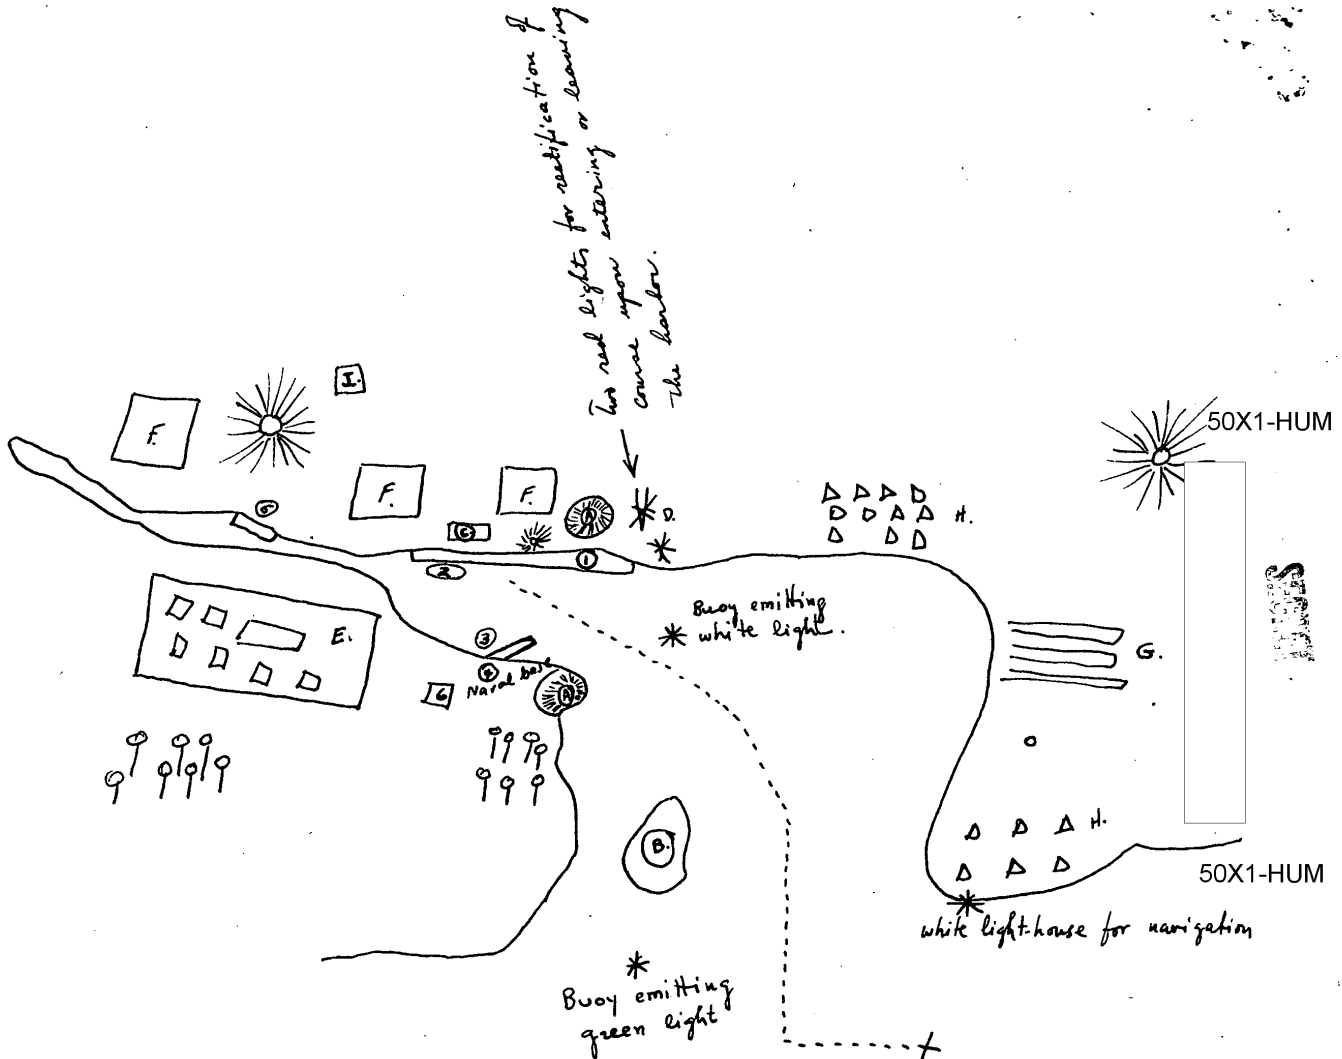 Two red lights for rectification of
course upon entering or leaving
the harbor.
I.
50X1-HUM
F.
F.
F.
5
A
D.
H.
C
1
2
Buoy emitting
white light.
E.
3
4
Naval base
6
A
G.
B.
H.
50X1-HUM
white light-house for navigation
Buoy emitting
green light